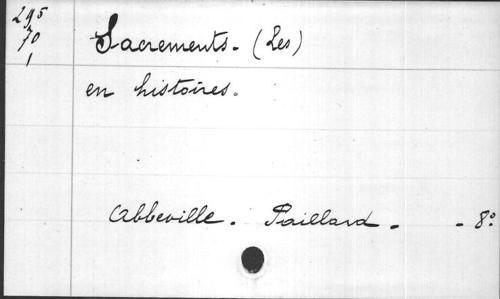 295
70
1
Sacrements. (Les)
en histoires.
Abbeville. Paillard. - 8º